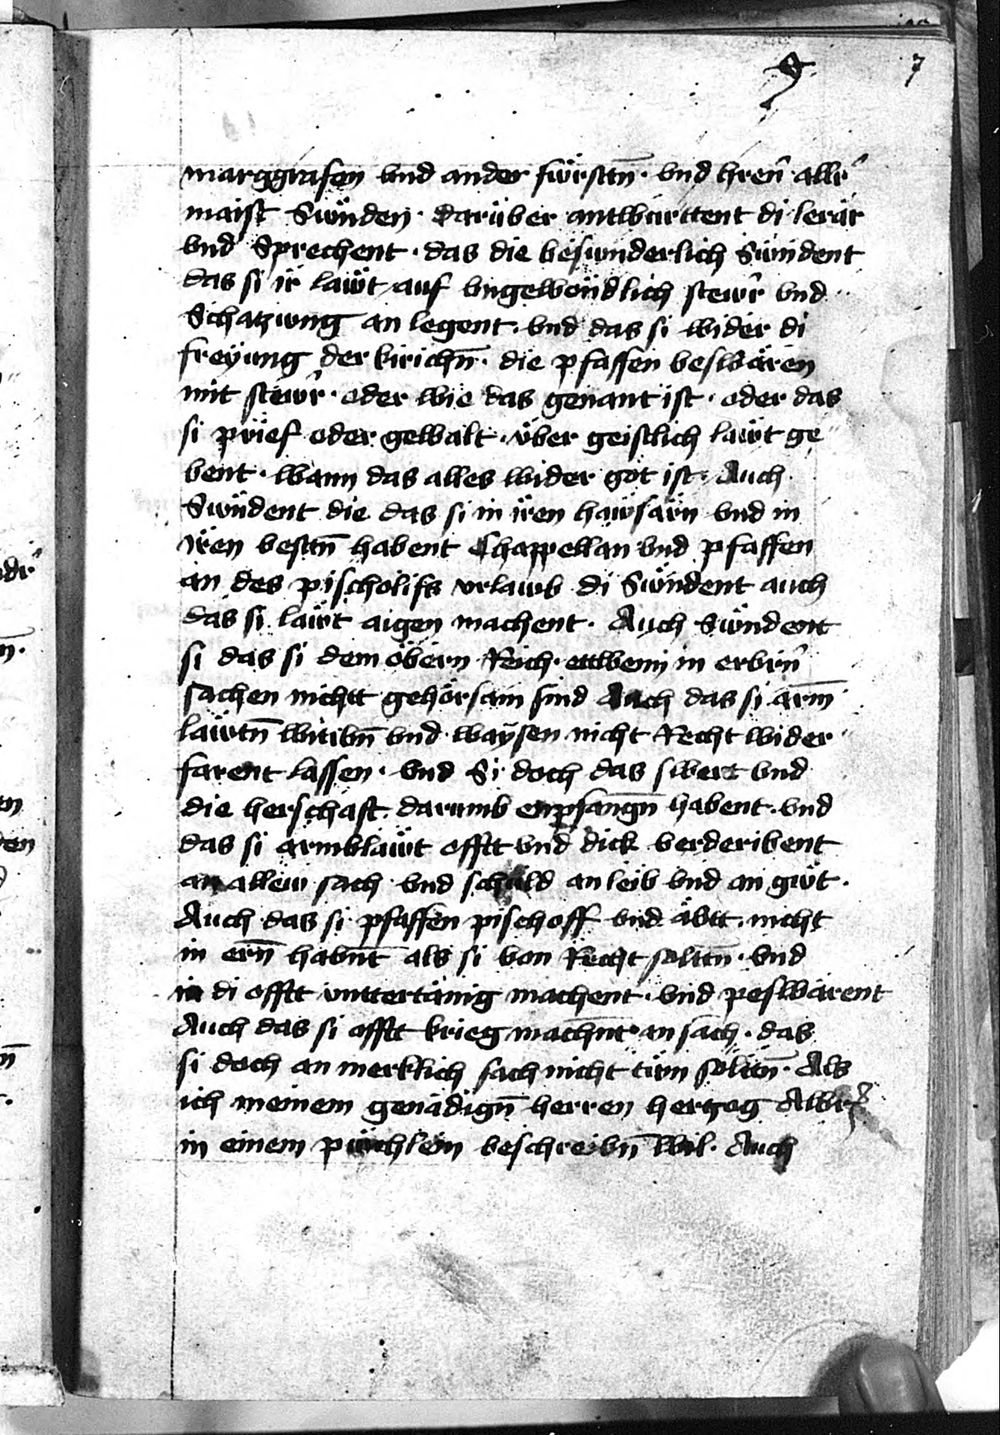 9 7
marggrafen vnd ander fürstn̄ · vnd hren̄ aller̄
maist Sünden · Darüber antwurttent di lerär
vnd Sprechent · das die besunderlich Sündent
das si ir läwt auf vngewöndlich stewr̄ vnd
Schatzung an legent · vnd das si wider di
freyung der kirichn̄ · die pfaffen beswären
mit stewr̄ · oder wie das genant ist · oder das
si prief oder gewalt · über geistlich läwt ge
bent · wann das alles wider got ist · Auch
Sündent die das si in iren hawsärn vnd in
iren vestn̄ habent Chappellan vnd pfaffen
an des pischolifs vrlawb di Sündent auch
das si läwt aigen machent · Auch Sündent
si das si dem öbern Reich · ettwenn in erbrn̄
sachen nichtt gehörsam sind Auch das si arm̄
läwtn̄ witibn̄ vnd waysen nicht Recht wider
farent lassen · vnd Si doch das swert vnd
die herschaft darumb enpfangn̄ habent · vnd
das si armbläwt offtt vnd dick verderibent
an allew sach vnd schuld an leib vnd an güt ·
Auch das si pfaffen pischoff vnd äbtt nicht
in ern̄ habn̄t als si von Recht soltn̄ · vnd
in di offtt vnttertänig machent · vnd peswärent
Auch das si offtt krieg machn̄t an sach · das
si doch an merklich sach nicht tün söltn̄ · Als
ich meinem genädign̄ herren hertzog Albr̄
in einem püchlein beschreibn̄ wil · Auch